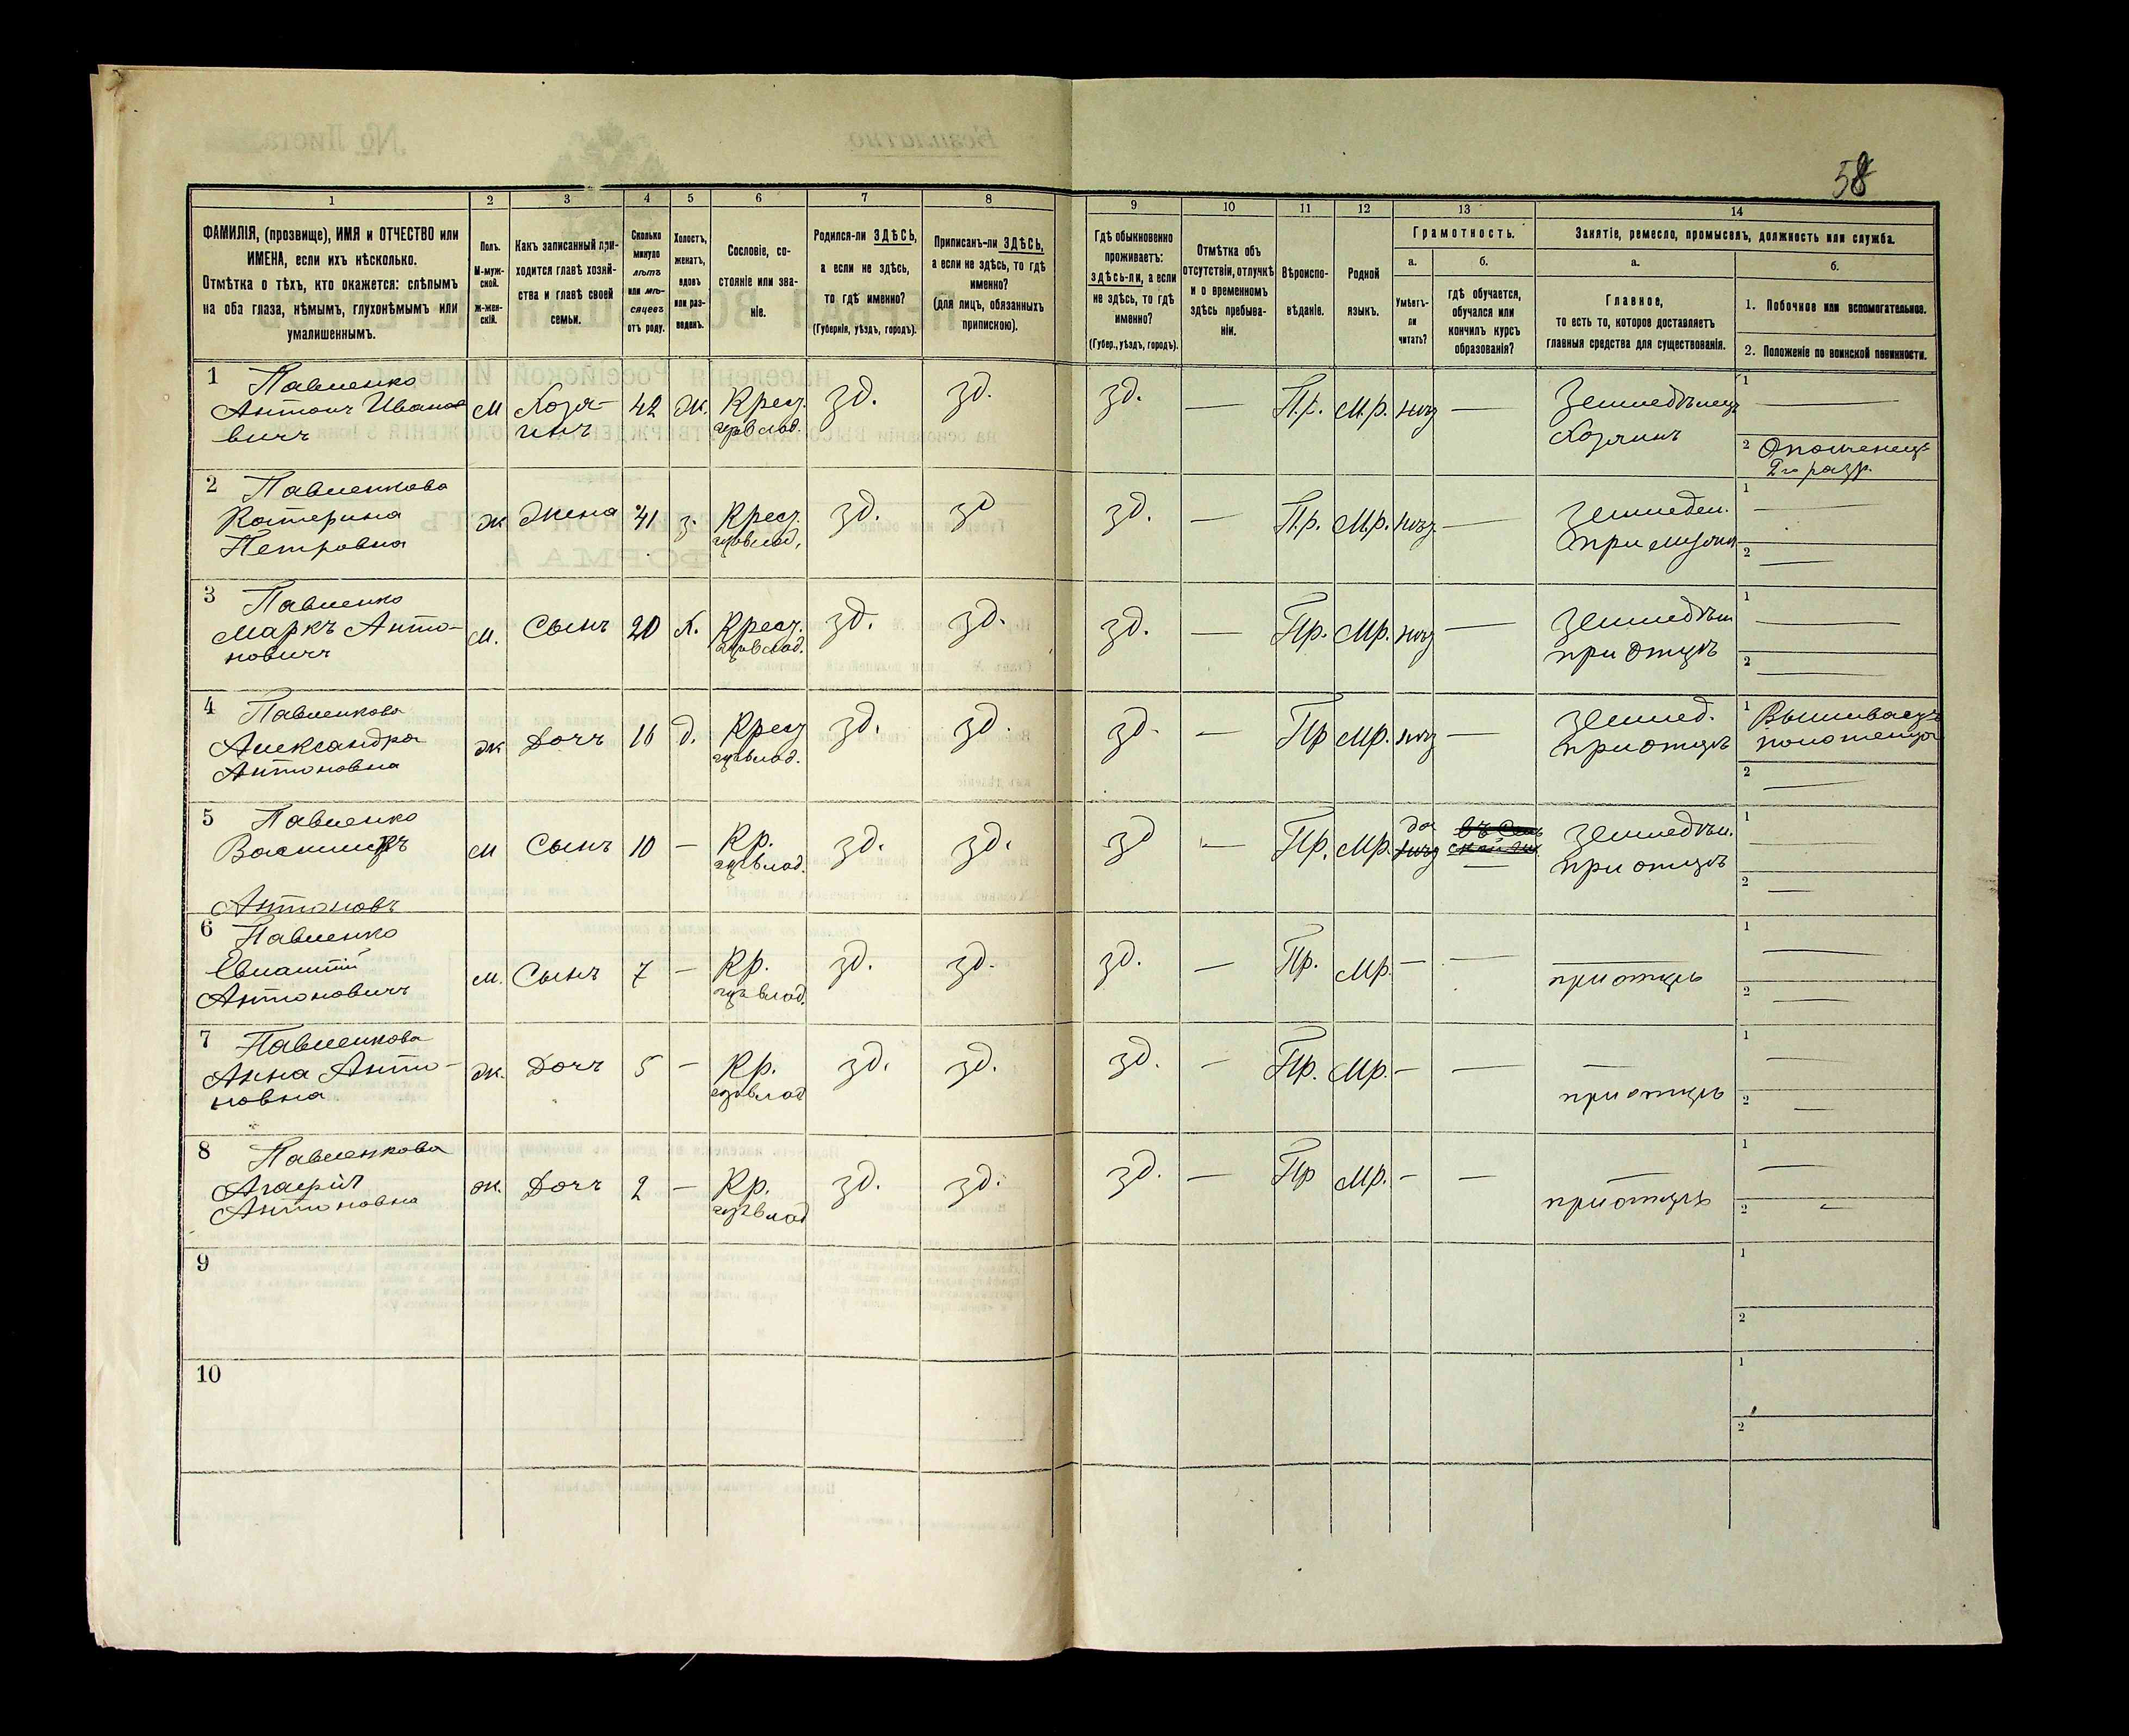 58
1
2
3
4
5
6
7
8
9
10
11
12
13
14
ФАМИЛІЯ, (прозвище), ИМЯ и ОТЧЕСТВО или
ИМЕНА, если ихъ нѣсколько.
Отмѣтка о тѣхъ, кто окажется: слѣпымъ
на оба глаза, нѣмымъ, глухонѣмымъ или
умалишеннымъ.
Полъ.
М-муж-
ской.
Ж-жен-
скій.
Какъ записанный при-
ходится главѣ хозяй-
ства и главѣ своей
семьи.
Сколько
минуло
лѣтъ
или мѣ-
сяцевъ
отъ роду.
Холостъ,
женатъ,
вдовъ
или раз-
веденъ.
Сословіе, со-
стояніе или зва-
ніе.
Родился-ли ЗДѢСЬ,
а если не здѣсь,
то гдѣ именно?
(Губернія, уѣздъ, городъ).
Приписанъ-ли ЗДѢСЬ,
а если не здѣсь, то гдѣ
именно?
(для лицъ, обязанныхъ
припискою).
Гдѣ обыкновенно
проживаетъ:
здѣсь-ли, а если
не здѣсь, то гдѣ
именно?
(Губер., уѣздъ, городъ).
Отмѣтка объ
отсутствіи, отлучкѣ
и о временномъ
здѣсь пребыва-
ніи.
Вѣроиспо-
вѣданіе.
Родной
языкъ.
Грамотность.
а.
Умѣетъ-
ли
читать?
б.
гдѣ обучается,
обучался или
кончилъ курсъ
образованія?
Занятіе, ремесло, промыселъ, должность или служба.
а.
Главное,
то есть то, которое доставляетъ
главныя средства для существованія.
б.
1. Побочное или вспомогательное.
2. Положеніе по воинской повинности.
1
Павленко
Антонъ Ивано
вичъ
М
Хозя-
инъ
42
Ж.
Крес.
зд.
зд.
зд.
—
П.р.
М.р.
Земледѣлецъ
Хозяинъ
1
—
2 Ополченецъ
2го разр.
2
Павленкова
Катерина
Петровна
ж
Жена
41
з.
Крес.
зд.
зд
зд.
—
П.р.
М.р.
—
Земледел.
при мужѣ
1
—
2
—
3
Павленко
Маркъ Анто-
новичъ
М.
Сынъ
20
Х.
Крес.
зд.
зд.
зд.
—
Пр.
Мр.
—
Земледѣл
при отцѣ
1
—
2
—
4
Павленкова
Александра
Антоновна
ж
Дочь
16
д.
Крес
зд.
зд.
зд.
—
Пр
Мр.
—
Землед.
при отцѣ
1 Вышиваетъ
полотенца
2
—
5
Павленко
Антоновъ
М
Сынъ
10
—
Кр.
зд.
зд.
зд
—
Пр.
Мр.
да
Земледѣл.
при отцѣ
1
—
2
—
6
Павленко
Антоновичъ
М.
Сынъ
7
—
Кр.
зд.
зд.
зд.
—
Пр.
Мр.
—
—
при отцѣ
1
—
2
—
7
Павленкова
Анна Анто-
новна
Ж.
Дочь
5
—
Кр.
зд.
зд.
зд.
—
Пр.
Мр.
—
—
при отцѣ
1
—
2
—
8
Павленкова
Антоновна
Ж.
Дочь
2
—
Кр.
зд.
зд.
зд.
—
Пр
Мр.
—
—
при отцѣ
1
—
2
—
9
1
2
10
1
2